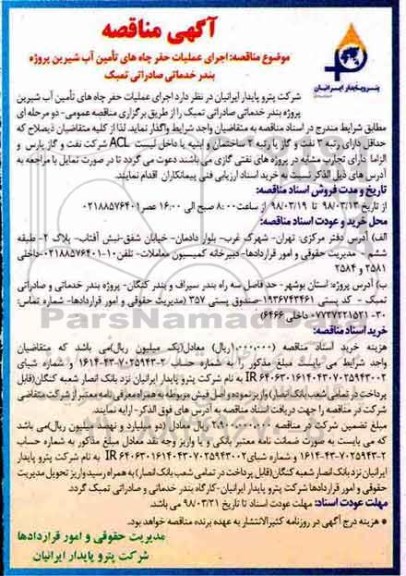 آگهی مناقصه
موضوع مناقصه: اجرای عملیات حفر چاه های تأمین آب شیرین پروژه
بندر خدماتی صادراتی تمبک
پتروپایدار ایرانیان
شرکت پترو پایدار ایرانیان در نظر دارد اجرای عملیات حفر چاه های تأمین آب شیرین
پروژه بندر خدماتی صادراتی تمبک را از طریق برگزاری مناقصه عمومی- دو مرحله ای
مطابق شرایط مندرج در اسناد مناقصه به متقاضیان واجد شرایط واگذار نماید. لذا از کلیه متقاضیان ذیصلاح که
حداقل دارای رتبه ۳ نفت و گاز یا رتبه ۲ ساختمان و ابنیه یا داخل لیست ACL شرکت نفت و گاز پارس و
الزاما دارای تجارب مشابه در پروژه های نفتی گازی می باشند، دعوت می گردد تا در صورت تمایل با مراجعه به
آدرس های ذیل الذکر نسبت به خرید اسناد ارزیابی فنی پیمانکاران اقدام نمایند.
تاریخ و مدت فروش اسناد مناقصه:
از تاریخ ۹۸/۰۳/۱۳ تا ۹۸/۰۳/۱۹ از ساعت ۸:۰۰ صبح الی ۱۶:۰۰ عصر ۰۲۱۸۸۵۷۶۴۰۱
محل خرید و عودت اسناد مناقصه:
الف) آدرس دفتر مرکزی: تهران- شهرک غرب- بلوار دادمان- خیابان شفق- نبش آفتاب- پلاک ۲- طبقه
ششم- مدیریت حقوقی و امور قراردادها- دبیرخانه کمیسیون معاملات- تلفن ۱۰-۰۲۱۸۸۵۷۶۴۰۱-داخلی
۲۵۸۱ و ۲۵۸۴
ب) آدرس پروژه: استان بوشهر- حد فاصل سه راه بندر سیراف و بندر کنگان- پروژه بندر خدماتی و صادراتی
تمبک - کد پستی ۱۹۳۶۷۴۳۴۶۱-صندوق پستی ۳۵۷ (مدیریت حقوقی و امور قراردادها- شماره تماس:
۳۰-۰۷۷۳۷۲۲۱۵۲۱- داخلی ۶۴۶۶)
خرید اسناد مناقصه:
هزینه خرید اسناد مناقصه (۱,۰۰۰,۰۰۰ریال) معادل(یک میلیون ریال)می باشد که متقاضیان
واجد شرایط می بایست مبلغ مذکور را به شماره حساب ۲-۷۰۲۵۹۴۳-۴۳-۱۶۱۴ و شماره شبای
به نام شرکت پترو پایدار ایرانیان نزد بانک انصار شعبه کنگان(قابل
پرداخت در تمامی شعب بانک انصار) واریز نموده و اصل فیش مربوطه به همراه معرفی نامه معتبر از شرکت متقاضی
شرکت در مناقصه را جهت دریافت اسناد مناقصه به آدرس های فوق الذکر- ارایه نمایند.
مبلغ تضمین شرکت در مناقصه معادل (دو میلیارد و نهصد میلیون ریال)می باشد
که می بایست به صورت ضمانت نامه معتبر بانکی و یا واریز وجه نقد معادل مبلغ مذکور به شماره حساب
۲-۷۰۲۵۹۴۳-۴۳-۱۶۱۴ و شماره شبای به نام شرکت پترو پایدار
ایرانیان نزد بانک انصار شعبه کنگان(قابل پرداخت در تمامی شعب بانک انصار) به همراه رسید واریز تحویل مدیریت
حقوقی و امور قراردادها شرکت پترو پایدار ایرانیان-کارگاه بندر خدماتی و صادراتی تمبک گردد.
مهلت عودت اسناد: مهلت عودت اسناد تا تاریخ ۹۸/۰۳/۲۱ می باشد.
* هزینه درج آگهی در روزنامه کثیرالانتشار به عهده برنده مناقصه خواهد بود.
مدیریت حقوقی و امور قراردادها
شرکت پترو پایدار ایرانیان